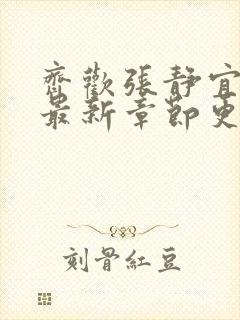 齊歡張靜宜
最新章節更
刻骨紅豆